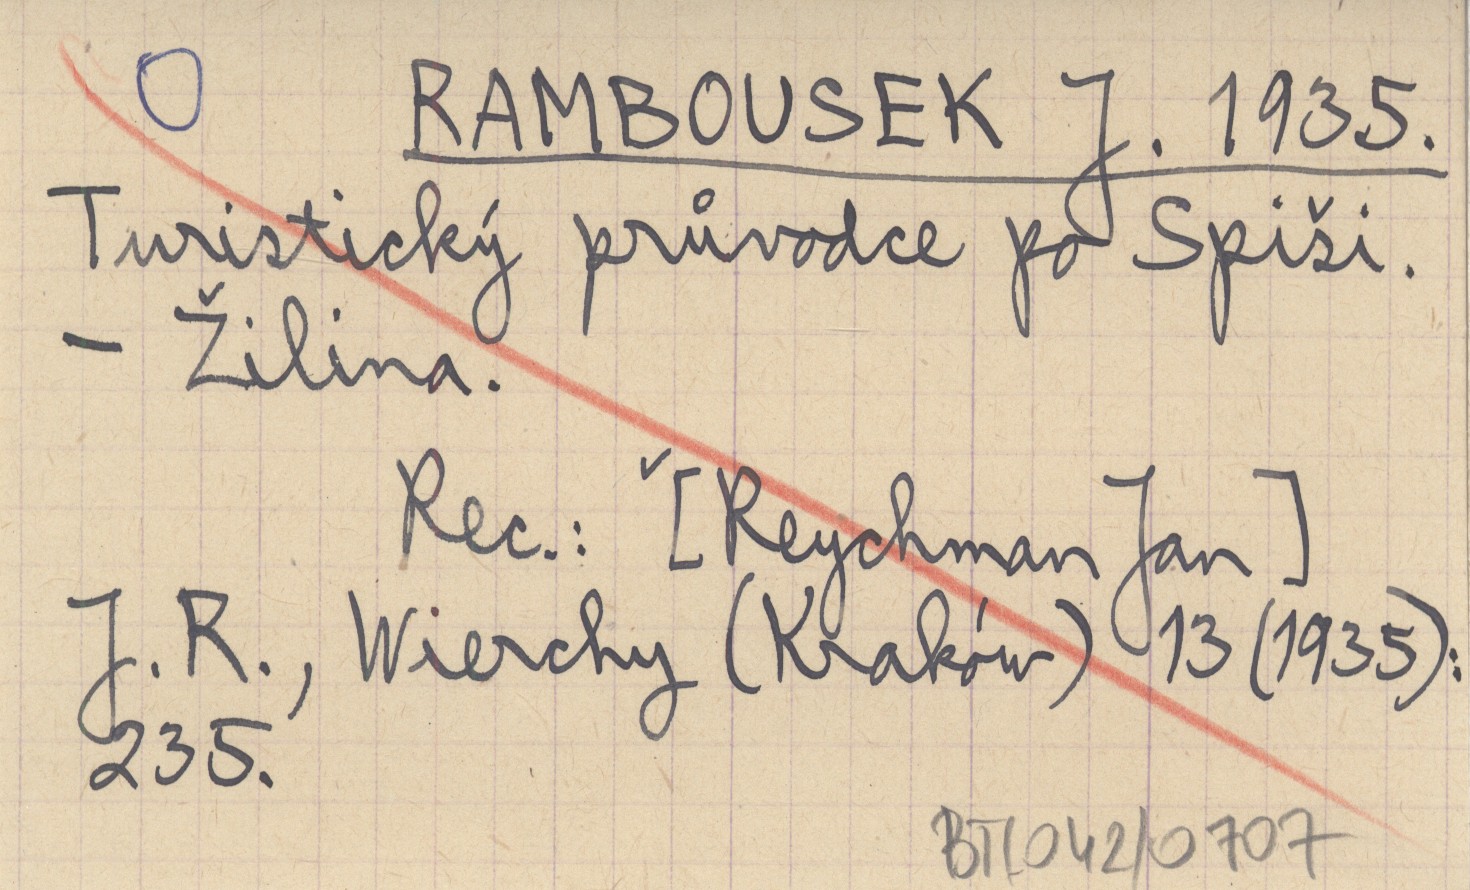 O RAMBOUSEK J. 1935.
Turistický průvodce po Spiši.
- Žilina.
Rec.: ˇ[Reychman Jan]
J. R., Wierchy (Kraków) 13 (1935):
235.
BT(042)0707